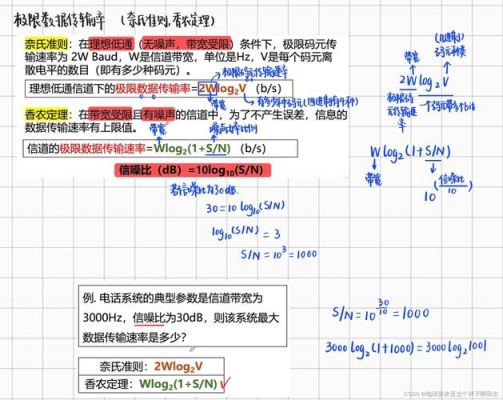 极限数据传输率 (奈氏准则,香农定理)
奈氏准则:在理想低通(无噪声,带宽受限)条件下,极限码元传
输速率为 2W Baud,W是信道带宽,单位是Hz,V是每个码元离
散电平的数目(即有多少种码元)。
极限码元传输速率
理想低通信道下的极限数据传输率=2Wlog₂V (b/s)
带宽
香农定理:在带宽受限且有噪声的信道中,为了不产生误差,信息的
数据传输速率有上限值。
带宽
信道的极限数据传输速率=Wlog₂(1+S/N) (b/s)
信噪比(dB)=10log₁₀(S/N)
若信噪比为30dB
30=10 log₁₀(S/N)
log₁₀(S/N) = 3
S/N = 10³ = 1000
带宽
码元种类
2W log₂ V
极限码
元传输速
率
W log₂(1+S/N)
带宽
10^(信噪比/10)
例. 电话系统的典型参数是信道带宽为
3000Hz,信噪比为30dB,则该系统最大
数据传输速率是多少?
奈氏准则:2Wlog₂V
香农定理:Wlog₂(1+S/N)
S/N = 10^(30/10) = 1000
3000 log₂(1+1000) = 3000 log₂ 1001